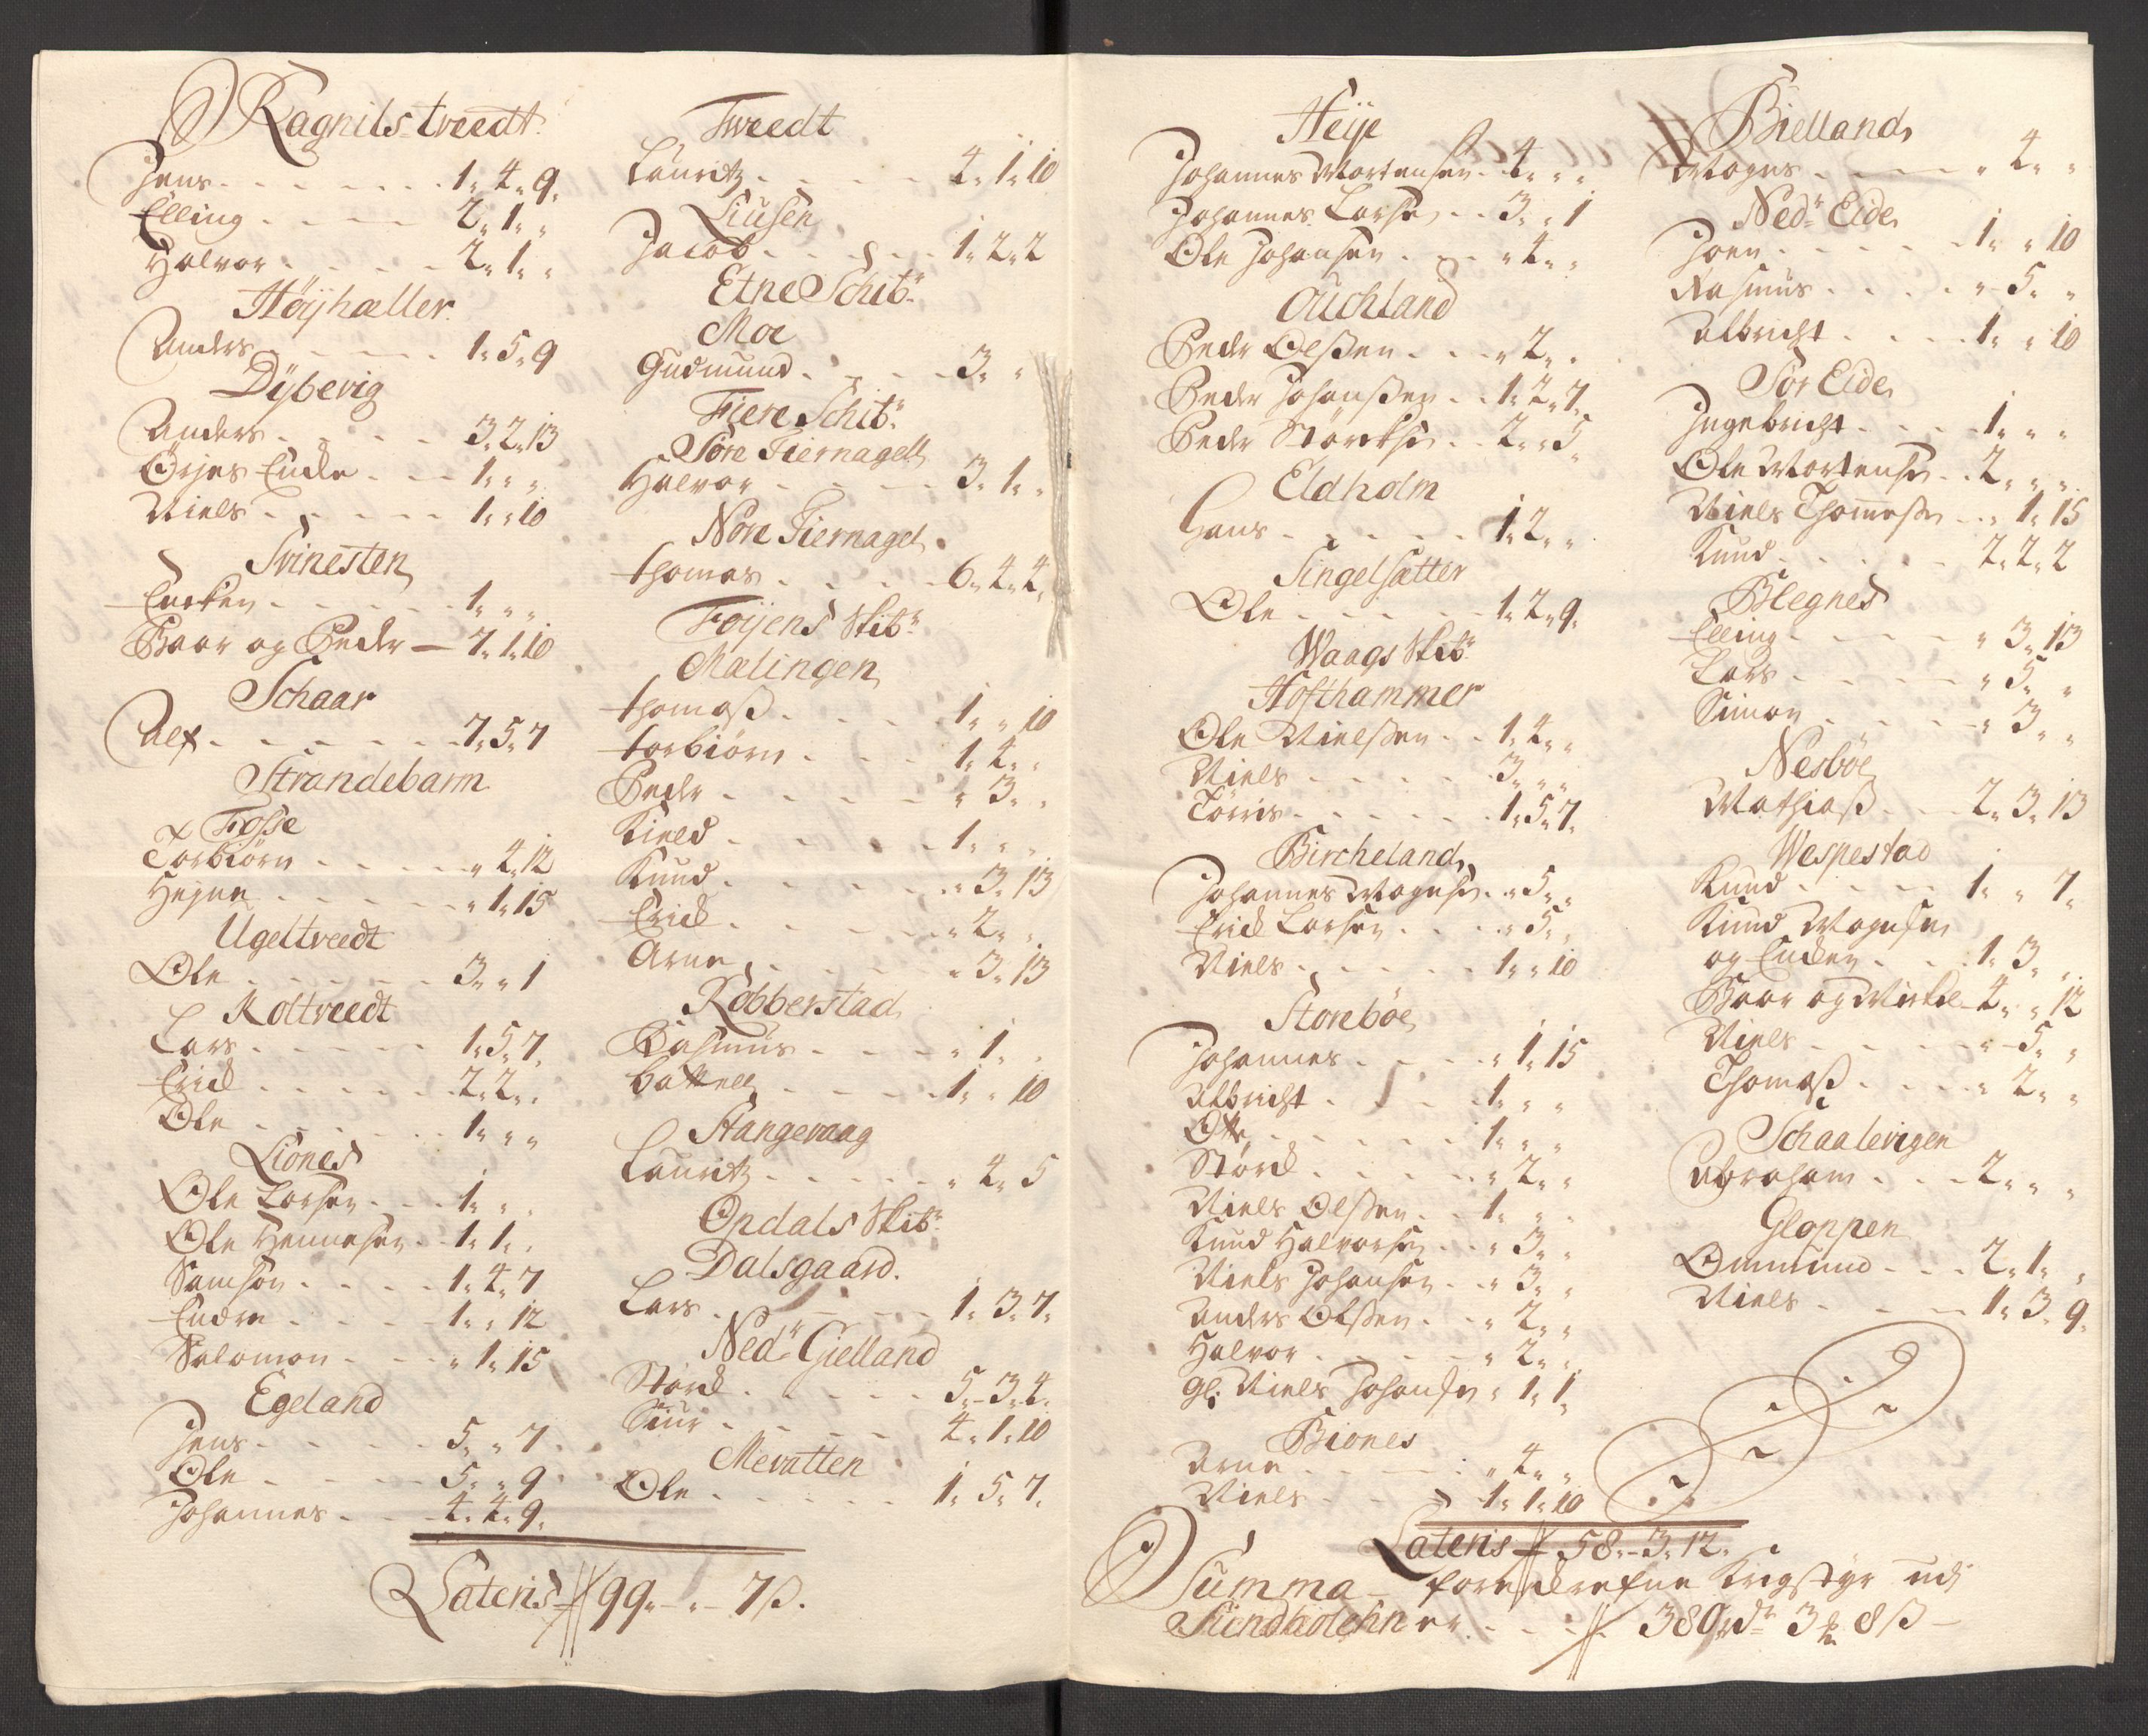 Ragnilstveedt
Jens - - - - - - 1" 4" 9"
Elling - - - - 2" 1" "
Halvor - - - - 2" 1" "
Höyhæller
Anders - - - - 1" 5" 9
Dÿbevig
Anders - - - - 3" 2" 13
Örjes Encke - - 1" " "
Niels - - - - 1" " 10
Svinesten
Encken - - - - - 1" " "
Baar og Peder — 7" 1" 10
Schaar
Alf - - - - - - 7" 5" 7
Strandebarm
Fosse
Torbiörn - - - - " 4" 12
Heÿne - - - - - " 1" 15
Ugeltveedt
Ole - - - - - 3" " 1
Koltveedt
Lars - - - - - 1" 5" 7"
Erick - - - - - 2" 2" "
Ole - - - - - 1" " "
Liones
Ole Larsen - - - 1" " "
Ole Hennesen - - 1" 1" "
Samson - - - - 1" 4" 7
Endre - - - - 1" " 12
Salomon - - - " 1" 15
Egeland
Jens - - - - - 5" " 7
Ole - - - - - 5" " 9
Johannes - - - 4" 4" 9"
Tweedt
Lauritz - - - - 4" 1" 10
Liusen
Jacob - - - - 1" 2" 2
Etne Schibr
Moe
Gudmund - - - - 3" "
Fiere Schibr
Söre Fiernagell
Halvor - - - - 3" 1" "
Nore Fiernagel
Thomas - - - - 6" 4" 4"
Foÿens Skibr
Mælingen
Thomass - - - - 1" " 10
Torbiörn - - - - 1" 4" "
Peder - - - - - " 3" "
Kield - - - - - 1" " "
Knud - - - - - " 3" 13
Erick - - - - - " 2" "
Arne - - - - - " 3" 13
Robberstad
Rasmus - - - - " 1" "
Battell - - - - 1" " 10
Stangevaag
Lauritz - - - - - " 4" 5
Opdals Skibr
Dalsgaard.
Lars - - - - - 1" 3" 7"
Nedr Gielland
Störck - - - - - 5" 3" 4"
Siur - - - - 4" 1" 10
Mevatten
Ole - - - - - 1" 5" 7"
Lateris # 99" - " - 7 ß.
Heÿe
Johannes Mortensen - 4" " "
Johannes Larsen - - 3" " 1
Ole Johansen - - - " 4" "
Ouchland
Peder Olssen - - - " 2" "
Peder Johanssen - - 1" 2" 7"
Peder Störcksen - - 2" " 5"
Eldholm
Hans - - - - - 1" 2" "
Singelsætter
Ole - - - - - 1" 2" 9"
Waags Skibr
Hofthammer
Ole Nielssen - - 1" 4" "
Niels - - - - - 3" " "
Törris - - - - - 1" 5" 7"
Bircheland
Johannes Mognsen - " 5" "
Erick Larsen - - - " 5" "
Niels - - - - - 1" " 10
Storeböe
Johannes - - - - " 1" 15
Albricht - - - - 1" " "
Otte - - - - - 1" " "
Störck - - - - - " 2" "
Niels Olssen - - 1" " "
Knud Halvorsen - - " 3" "
Niels Johansen - - " 3" "
Anders Olssen - - " 2" "
Halvor - - - - - " 2" "
Gl: Niels Johansen " 1" 1"
Biones
Arne - - - - - " 4" "
Niels - - - - 1" 1" 10
Lateris # 58" - 3" 12"
Bielland
Mogns - - - - " 4" "
Nedr Eide
Joen - - - - - 1" " 10
Rasmus - - - - " 5" "
Albricht - - - - 1" " 10
Sör Eide
Ingebricht - - - 1" " "
Ole Mortensen - - 2" " "
Niels Thommessen - - " 1" 15
Knud - - - - - 2" 2" 2
Blegnes
Elling - - - - " 3" 13
Lars - - - - - " 5" "
Simon - - - - " 3" "
Nesböe
Mathiass - - - 2" 3" 13
Wespestad
Knud - - - - 1" " 7"
Knud Mognsen
og Enken - - - 1" 3" "
Baar og Mickel - 4" " 12
Niels - - - - - " 5" "
Thomass - - - - " 2" "
Schaalevigen
Abraham - - - 2" " "
Gloppen
Ommund - - - 2" 1" "
Niels - - - - 1" 3" 9"
Summa - foreskrefne Krigstyr udj
Sundholehn er - - - # 380 rdr 3 ¥ 8 ß —